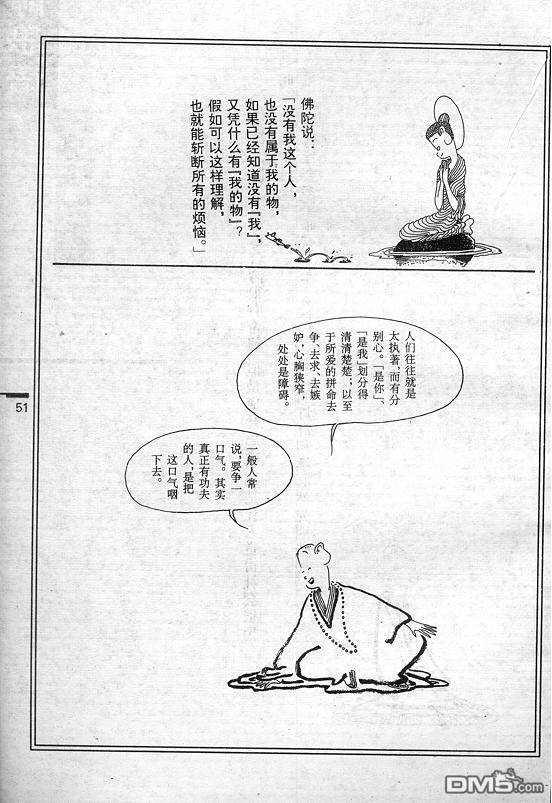 佛陀说：
「没有我这个人，
也没有属于我的物，
如果已经知道没有『我』，
又凭什么有『我的物』？
假如可以这样理解，
也就能斩断所有的烦恼。」
人们往往就是
太执著，而有分
别心。「是你」、
「是我」划分得
清清楚楚；以至
于所爱的拼命去
争、去求、去嫉
妒，心胸狭窄，
处处是障碍。
一般人常
说，要争一
口气。其实
真正有功夫
的人，是把
这口气咽
下去。
51
DM5.com